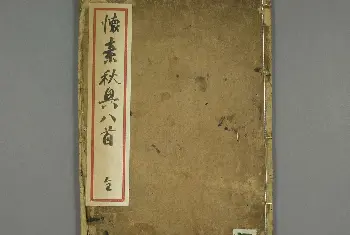 懐素秋興八首 全